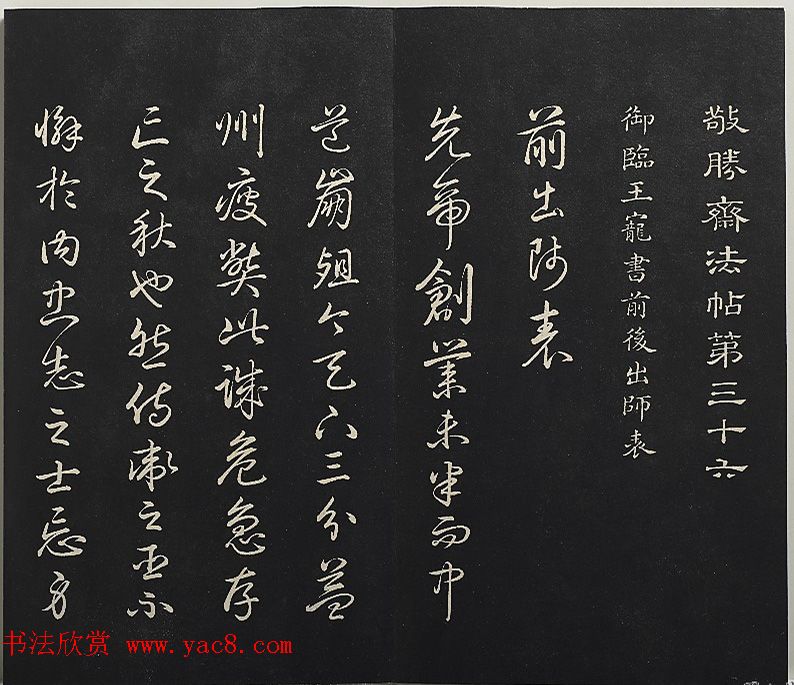 敬勝齋法帖第三十六
御臨王寵書前後出師表
前出師表
先帝創業未半而中
道崩殂今天下三分益
州疲弊此誠危急存
亡之秋也然侍衛之臣不
懈於内忠志之士忘身
书法欣赏 www.yac8.com